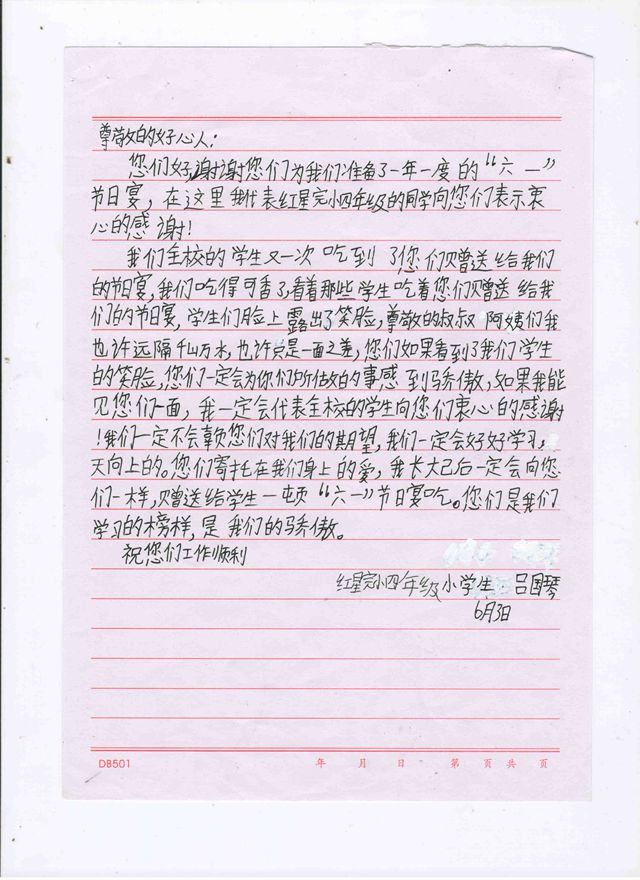 尊敬的好心人：
您们好，谢谢您们为我们准备了一年一度的“六一”
节日宴，在这里我代表红星完小四年级的同学向您们表示衷
心的感谢！
我们全校的学生又一次吃到了您们赠送给我们
的节日宴，我们吃得可香了，看着那些学生吃着您们赠送给我
们的节日宴，学生们脸上露出了笑脸，尊敬的叔叔阿姨们我
也许远隔千山万水，也许只是一面之差，您们如果看到了我们学生
的笑脸，您们一定会为你们所做的事感到骄傲，如果我能
见您们一面，我一定会代表全校的学生向您们衷心的感谢
！我们一定不会辜负您们对我们的期望，我们一定会好好学习，
天向上的。您们寄托在我们身上的爱，我长大己后一定会向您
们一样，赠送给学生一顿“六一”节日宴吃。您们是我们
学习的榜样，是我们的骄傲。
祝您们工作顺利
红星完小四年级小学生 吕国琴
6月3日
DB501 年 月 日 第 页 共 页